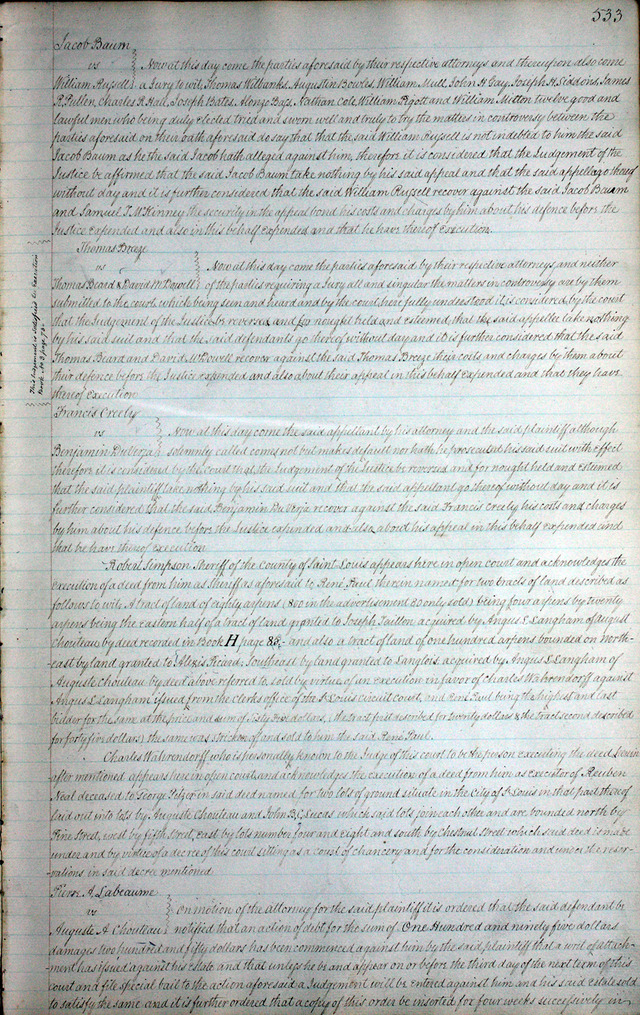 533
Jacob Baum
vs } Now at this day come the parties aforesaid by their respective attorneys and thereupon also come
William Russell a Jury to wit, Thomas Wilbanks, Augustin Bowles, William Mull, John H Gay, Joseph H. Siddons, James
R. Pullen, Charles R. Hall, Joseph Bates, Alonzo Bass, Nathan Cole, William Pigott and William Mitton twelve good and
lawful men who being duly elected tried and sworn well and truly to try the matters in controversy between the
parties aforesaid on their oath aforesaid do say that the said William Russell is not indebted to him the said
Jacob Baum as he the said Jacob hath alleged against him, therefore it is considered that the Judgement of the
Justice be affirmed that the said Jacob Baum take nothing by his said appeal and that the said appellee go thereof
without day and it is further considered that the said William Russell recover against the said Jacob Baum
and Samuel T. McKinney the security in the appeal bond his costs and charges by him about his defence before the
Justice expended and also in this behalf expended and that he have thereof execution.
Thomas Breeze
vs } Now at this day come the parties aforesaid by their respective attorneys and neither
Thomas Beard & David McDowell of the parties requiring a Jury all and singular the matters in controversy are by them
submitted to the court, which being seen and heard and by the court here fully understood it is considered by the court
that the Judgement of the Justice be reversed, and for nought held and esteemed, that the said appellee take nothing
by his said suit and that the said defendants go thereof without day and it is further considered that the said
Thomas Beard and David McDowell recover against the said Thomas Breeze their costs and charges by them about
their defence before the Justice expended and also about their appeal in this behalf expended and that they have
thereof execution
This Judgement is satisfied see Execution
Book page
Francis Creely
vs } Now at this day come the said appellant by his attorney and the said plaintiff although
Benjamin Duverja solemnly called comes not but makes default nor hath he prosecuted his said suit with effect
therefore it is considered by the court that the Judgement of the Justice be reversed and for nought held and esteemed
that the said plaintiff take nothing by his said suit and that the said appellant go thereof without day and it is
further considered that the said Benjamin Duverja recover against the said Francis Creely his costs and charges
by him about his defence before the Justice expended and also about his appeal in this behalf expended and
that he have thereof execution
Robert Simpson Sheriff of the County of Saint Louis appears here in open court and acknowledges the
execution of a deed from him as Sheriff as aforesaid to René Paul therein named for two tracts of land described as
follows to wit, A tract of land of eighty arpens (800 in the advertisement 80 only sold) being four arpens by twenty
arpens being the eastern half of a tract of land granted to Joseph Taillon acquired by Angus L Langham of August
Chouteau by deed recorded in Book H page 85,- and also a tract of land of one hundred arpens bounded on north-
east by land granted to Alexis Picard, Southeast by land granted to Langlois acquired by Angus L Langham of
Auguste Chouteau by deed above referred to, sold by virtue of an execution in favor of Charles Wahrendorff against
Angus L Langham issued from the clerks office of the St Louis circuit court, and René Paul being the highest and last
bidder for the same at the price and sum of sixty five dollars, (the tract first described for twenty dollars & the tract second described
for forty five dollars) the same was stricken off and sold to him the said René Paul.
Charles Wahrendorff who is personally known to the Judge of this court to be the person executing the deed herein
after mentioned appears here in open court and acknowledges the execution of a deed from him as executor of Reuben
Neal deceased to George Pelzer in said deed named for two lots of ground situate in the City of St Louis in that part thereof
laid out into lots by Auguste Chouteau and John B. C. Lucas which said lots join each other and are bounded north by
Pine Street, west by fifth Street, east by lots number four and eight and south by Chesnut Street which said deed is made
under and by virtue of a decree of this court sitting as a court of chancery and for the consideration and under the reser-
vations in said decree mentioned
Pierre A Labeaume
vs } On motion of the attorney for the said plaintiff it is ordered that the said defendant be
Auguste A Chouteau notified that an action of debt for the sum of One Hundred and ninety five dollars
damages two hundred and fifty dollars has been commenced against him by the said plaintiff that a writ of attach-
ment has issued against his estate and that unless he be and appear on or before the third day of the next term of this
court and file special bail to the action aforesaid a Judgement will be entered against him and his said estate sold
to satisfy the same and it is further ordered that a copy of this order be inserted for four weeks successively in